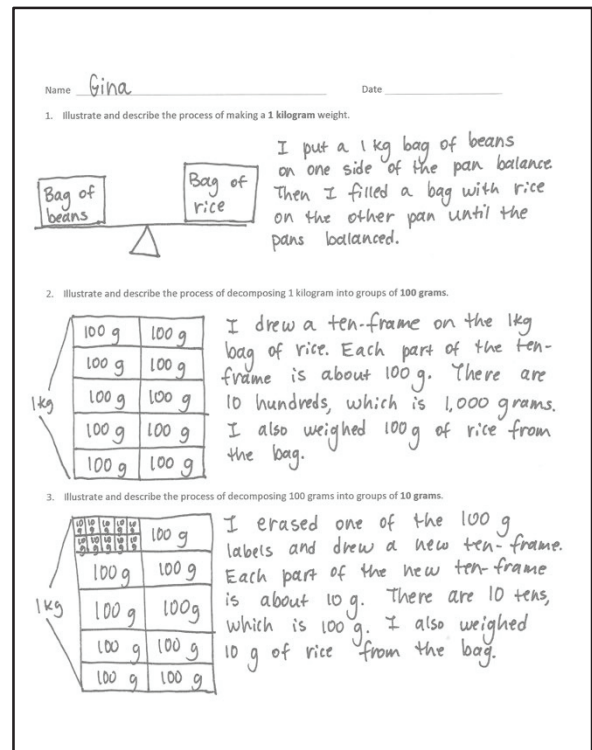 Name Gina Date
1. Illustrate and describe the process of making a 1 kilogram weight.
I put a 1 kg bag of beans
on one side of the pan balance.
Then I filled a bag with rice
on the other pan until the
pans balanced.
Bag of
beans
Bag of
rice
2. Illustrate and describe the process of decomposing 1 kilogram into groups of 100 grams.
1kg
100 g 100 g
100 g 100 g
100 g 100 g
100 g 100 g
100 g 100 g
I drew a ten-frame on the 1kg
bag of rice. Each part of the ten-
frame is about 100 g. There are
10 hundreds, which is 1,000 grams.
I also weighed 100 g of rice from
the bag.
3. Illustrate and describe the process of decomposing 100 grams into groups of 10 grams.
1kg
10 g 10 g 10 g 10 g 10 g
10 g 10 g 10 g 10 g 10 g
100 g
100 g 100 g
100 g 100g
100 g 100 g
100 g 100 g
I erased one of the 100 g
labels and drew a new ten-frame.
Each part of the new ten-frame
is about 10 g. There are 10 tens,
which is 100 g. I also weighed
10 g of rice from the bag.